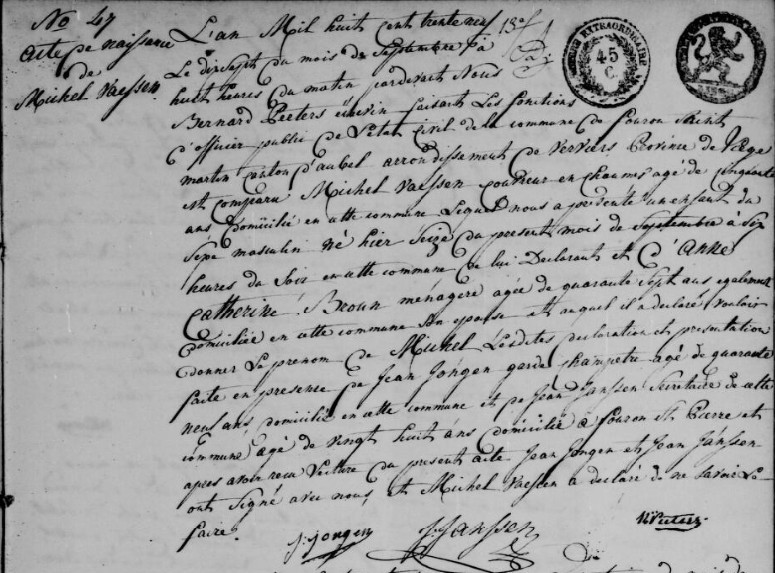 No 47
acte de naissance
de
Michel Vaessen.
L'an Mil huit Cent trente neuf
Le dix sept du mois de Septembre à
huit heures du matin pardevant Nous
Bernard Peeters échevin faisant Les fonctions
d'officier public de L'état Civil de la commune de fouron Saint
martin Canton d'aubel arrondissement de Verviers Province de Liege
est comparu Michel Vaessen couvreur en chaume agé de cinquante
ans Domicilié en cette commune Lequel nous a présenté un enfant du
Sexe masculin né hier Seize du present mois de Septembre à Six
heures du Soir en cette commune de lui Declarant et d'Anne
Catherine Broun ménagere agée de quarante Sept ans egalement
Domiciliée en cette commune Son epouse et auquel il a declaré vouloir
Donner Le prenom de Michel Lesdites declaration et presentation
faite en presence de Jean Jongen garde champetre agé de quarante
neuf ans, domicilié en cette commune et de Jean Janssen Secretaire de cette
commune agé de vingt huit ans domicilié à fouron St Pierre et
apres avoir recu Lecture du present acte Jean Jongen et Jean Janssen
ont Signé avec nous, et Michel Vaessen a déclaré de ne savoir Le
faire.
J: jongen
J. Janssen
EXTRAORDINAIRE
45
C.